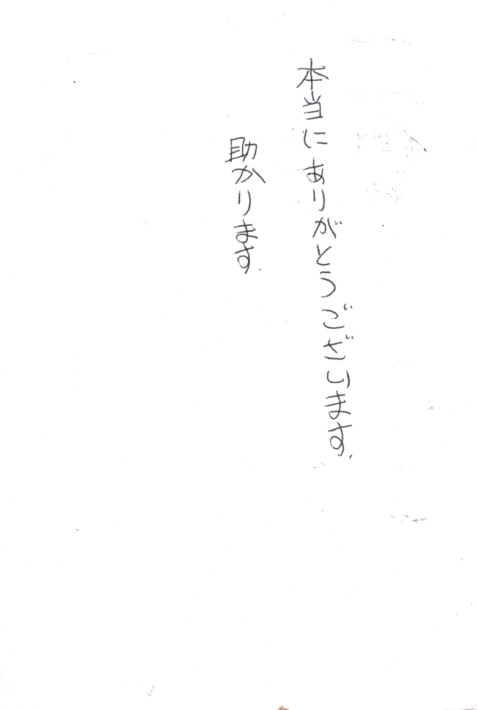 本当にありがとうございます.
助かります.